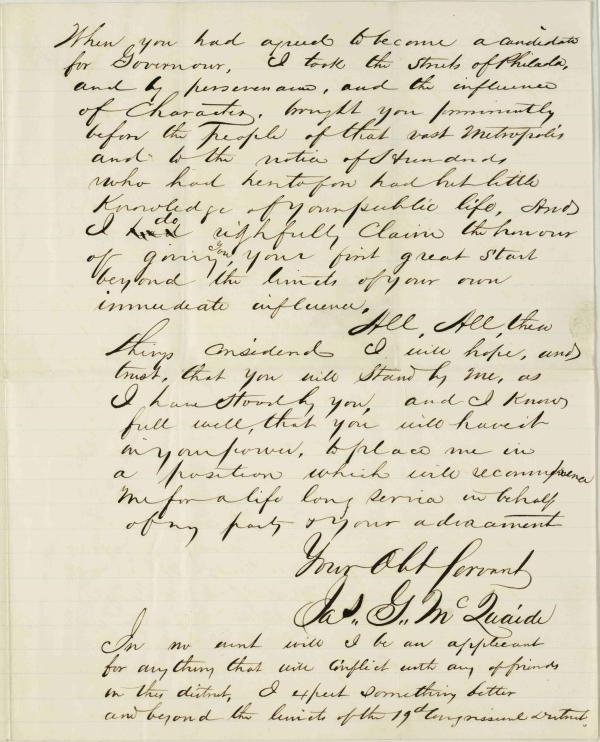 When you had agreed to become a candidate
for Governour, I took the streets of Philada,
and by perseverance, and the influence
of Character, brought you prominently
before the People of that vast Metropolis
and to the notice of Hundreds
who had heretofore had but little
Knowledge of your public life, And
I do rightfully Claim the honour
of giving you, your first great start
beyond the limits of your own
immediate influence.
All, All, these
things considered I will hope, and
trust, that you will stand by me, as
I have stood by you, and I know
full well, that you will have it
in your power, to place me in
a position which will recompense
me for a life long service in behalf
of my party & your advacment
Your Obt Servant
Jas. G. McQuaide
In no will I be an applicant
for anything that will conflict with any of friends
in this district, I expect something better
and beyond the limits of the 19th Congressional District.